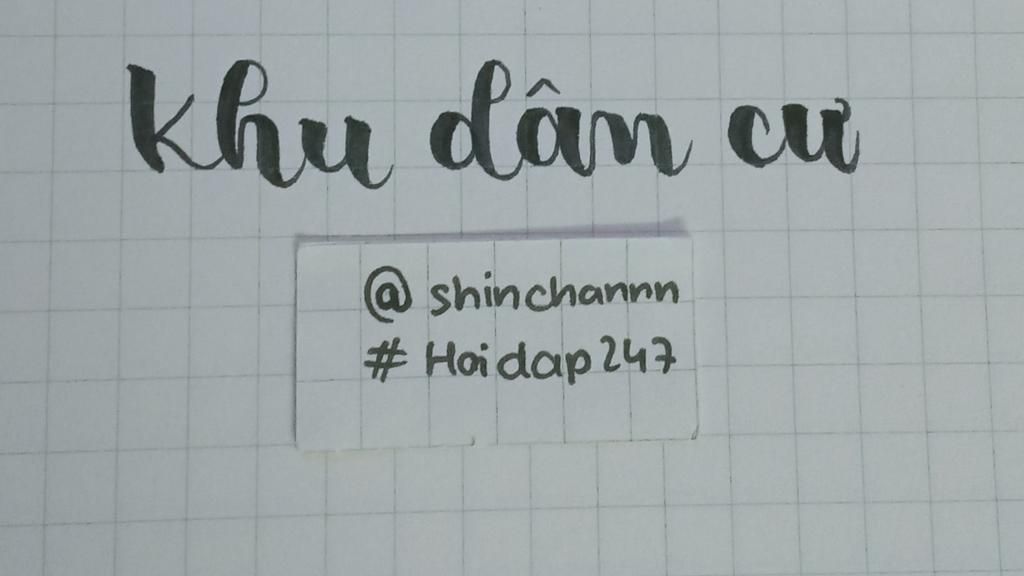 khu dân cư
@ shinchannn
# Hoidap247